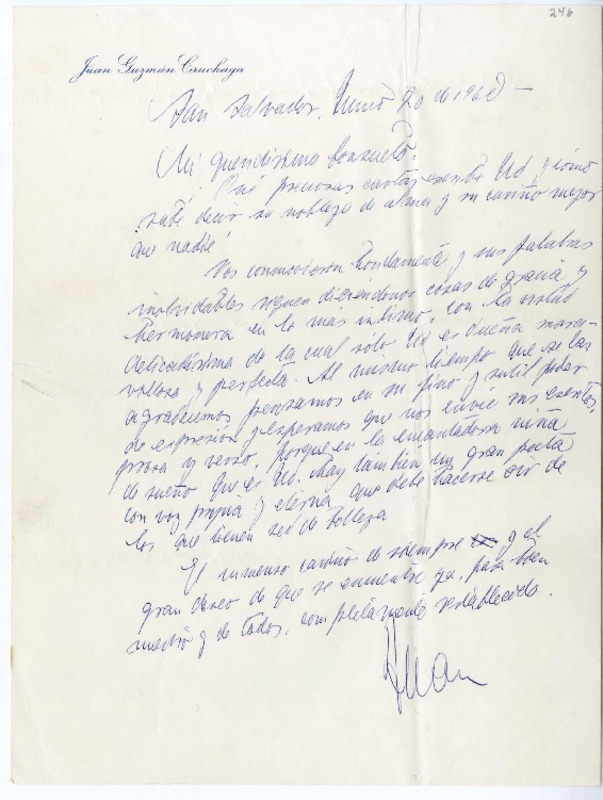 246
Juan Guzmán Cruchaga
San Salvador, Junio 20 de 1960 –
Mi queridísima Consuelo:
¡Qué preciosas cartas escribe Ud y cómo
sabe decir su nobleza de alma y su cariño mejor
que nadie!
Nos conmovieron hondamente y sus palabras
inolvidables siguen diciéndonos cosas de gracia y
hermosura en lo más íntimo, con la
delicadísima de la cual solo Ud es dueña mara-
villosa y perfecta. Al mismo tiempo que se las
agradecemos pensamos en su fino y sutil poder
de expresión y esperamos que nos envíe sus escritos,
prosa y verso, porque en la encantadora niña
de sueño que es Ud. hay también un gran poeta
con voz propia y eterna que debe hacerse oír de
los que tienen sed de belleza
El inmenso cariño de siempre y el
gran deseo de que se encuentre ya, para bien
nuestro y de todos, completamente restablecida.
Juan